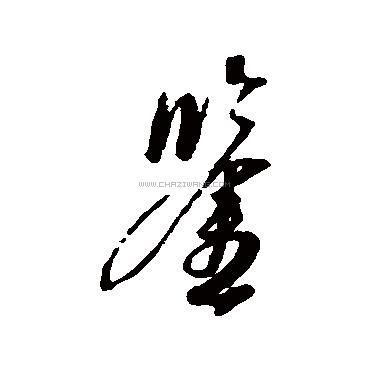 鉴
WWW.CHAZIWANG.COM